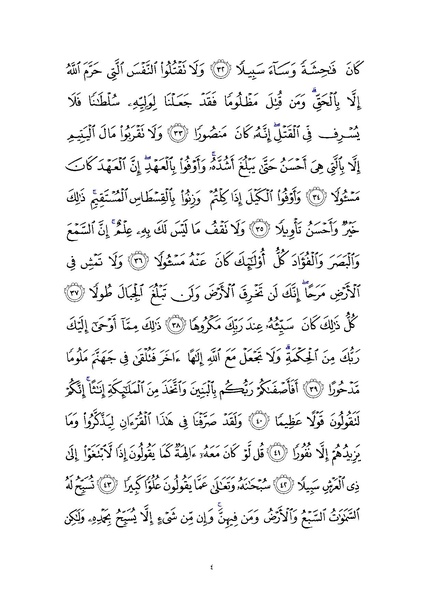 كَانَ فَٰحِشَةً وَسَآءَ سَبِيلًا ۝٣٢ وَلَا تَقْتُلُوا۟ ٱلنَّفْسَ ٱلَّتِى حَرَّمَ ٱللَّهُ
إِلَّا بِٱلْحَقِّ ۗ وَمَن قُتِلَ مَظْلُومًا فَقَدْ جَعَلْنَا لِوَلِيِّهِۦ سُلْطَٰنًا فَلَا
يُسْرِف فِّى ٱلْقَتْلِ ۖ إِنَّهُۥ كَانَ مَنصُورًا ۝٣٣ وَلَا تَقْرَبُوا۟ مَالَ ٱلْيَتِيمِ
إِلَّا بِٱلَّتِى هِىَ أَحْسَنُ حَتَّىٰ يَبْلُغَ أَشُدَّهُۥ ۚ وَأَوْفُوا۟ بِٱلْعَهْدِ ۖ إِنَّ ٱلْعَهْدَ كَانَ
مَسْـُٔولًا ۝٣٤ وَأَوْفُوا۟ ٱلْكَيْلَ إِذَا كِلْتُمْ وَزِنُوا۟ بِٱلْقِسْطَاسِ ٱلْمُسْتَقِيمِ ۚ ذَٰلِكَ
خَيْرٌ وَأَحْسَنُ تَأْوِيلًا ۝٣٥ وَلَا تَقْفُ مَا لَيْسَ لَكَ بِهِۦ عِلْمٌ ۚ إِنَّ ٱلسَّمْعَ
وَٱلْبَصَرَ وَٱلْفُؤَادَ كُلُّ أُو۟لَٰٓئِكَ كَانَ عَنْهُ مَسْـُٔولًا ۝٣٦ وَلَا تَمْشِ فِى
ٱلْأَرْضِ مَرَحًا ۖ إِنَّكَ لَن تَخْرِقَ ٱلْأَرْضَ وَلَن تَبْلُغَ ٱلْجِبَالَ طُولًا ۝٣٧
كُلُّ ذَٰلِكَ كَانَ سَيِّئُهُۥ عِندَ رَبِّكَ مَكْرُوهًا ۝٣٨ ذَٰلِكَ مِمَّآ أَوْحَىٰٓ إِلَيْكَ
رَبُّكَ مِنَ ٱلْحِكْمَةِ ۗ وَلَا تَجْعَلْ مَعَ ٱللَّهِ إِلَٰهًا ءَاخَرَ فَتُلْقَىٰ فِى جَهَنَّمَ مَلُومًا
مَّدْحُورًا ۝٣٩ أَفَأَصْفَىٰكُمْ رَبُّكُم بِٱلْبَنِينَ وَٱتَّخَذَ مِنَ ٱلْمَلَٰٓئِكَةِ إِنَٰثًا ۚ إِنَّكُمْ
لَتَقُولُونَ قَوْلًا عَظِيمًا ۝٤٠ وَلَقَدْ صَرَّفْنَا فِى هَٰذَا ٱلْقُرْءَانِ لِيَذَّكَّرُوا۟ وَمَا
يَزِيدُهُمْ إِلَّا نُفُورًا ۝٤١ قُل لَّوْ كَانَ مَعَهُۥٓ ءَالِهَةٌ كَمَا يَقُولُونَ إِذًا لَّٱبْتَغَوْا۟ إِلَىٰ
ذِى ٱلْعَرْشِ سَبِيلًا ۝٤٢ سُبْحَٰنَهُۥ وَتَعَٰلَىٰ عَمَّا يَقُولُونَ عُلُوًّا كَبِيرًا ۝٤٣ تُسَبِّحُ لَهُ
ٱلسَّمَٰوَٰتُ ٱلسَّبْعُ وَٱلْأَرْضُ وَمَن فِيهِنَّ ۚ وَإِن مِّن شَىْءٍ إِلَّا يُسَبِّحُ بِحَمْدِهِۦ وَلَٰكِن
٤